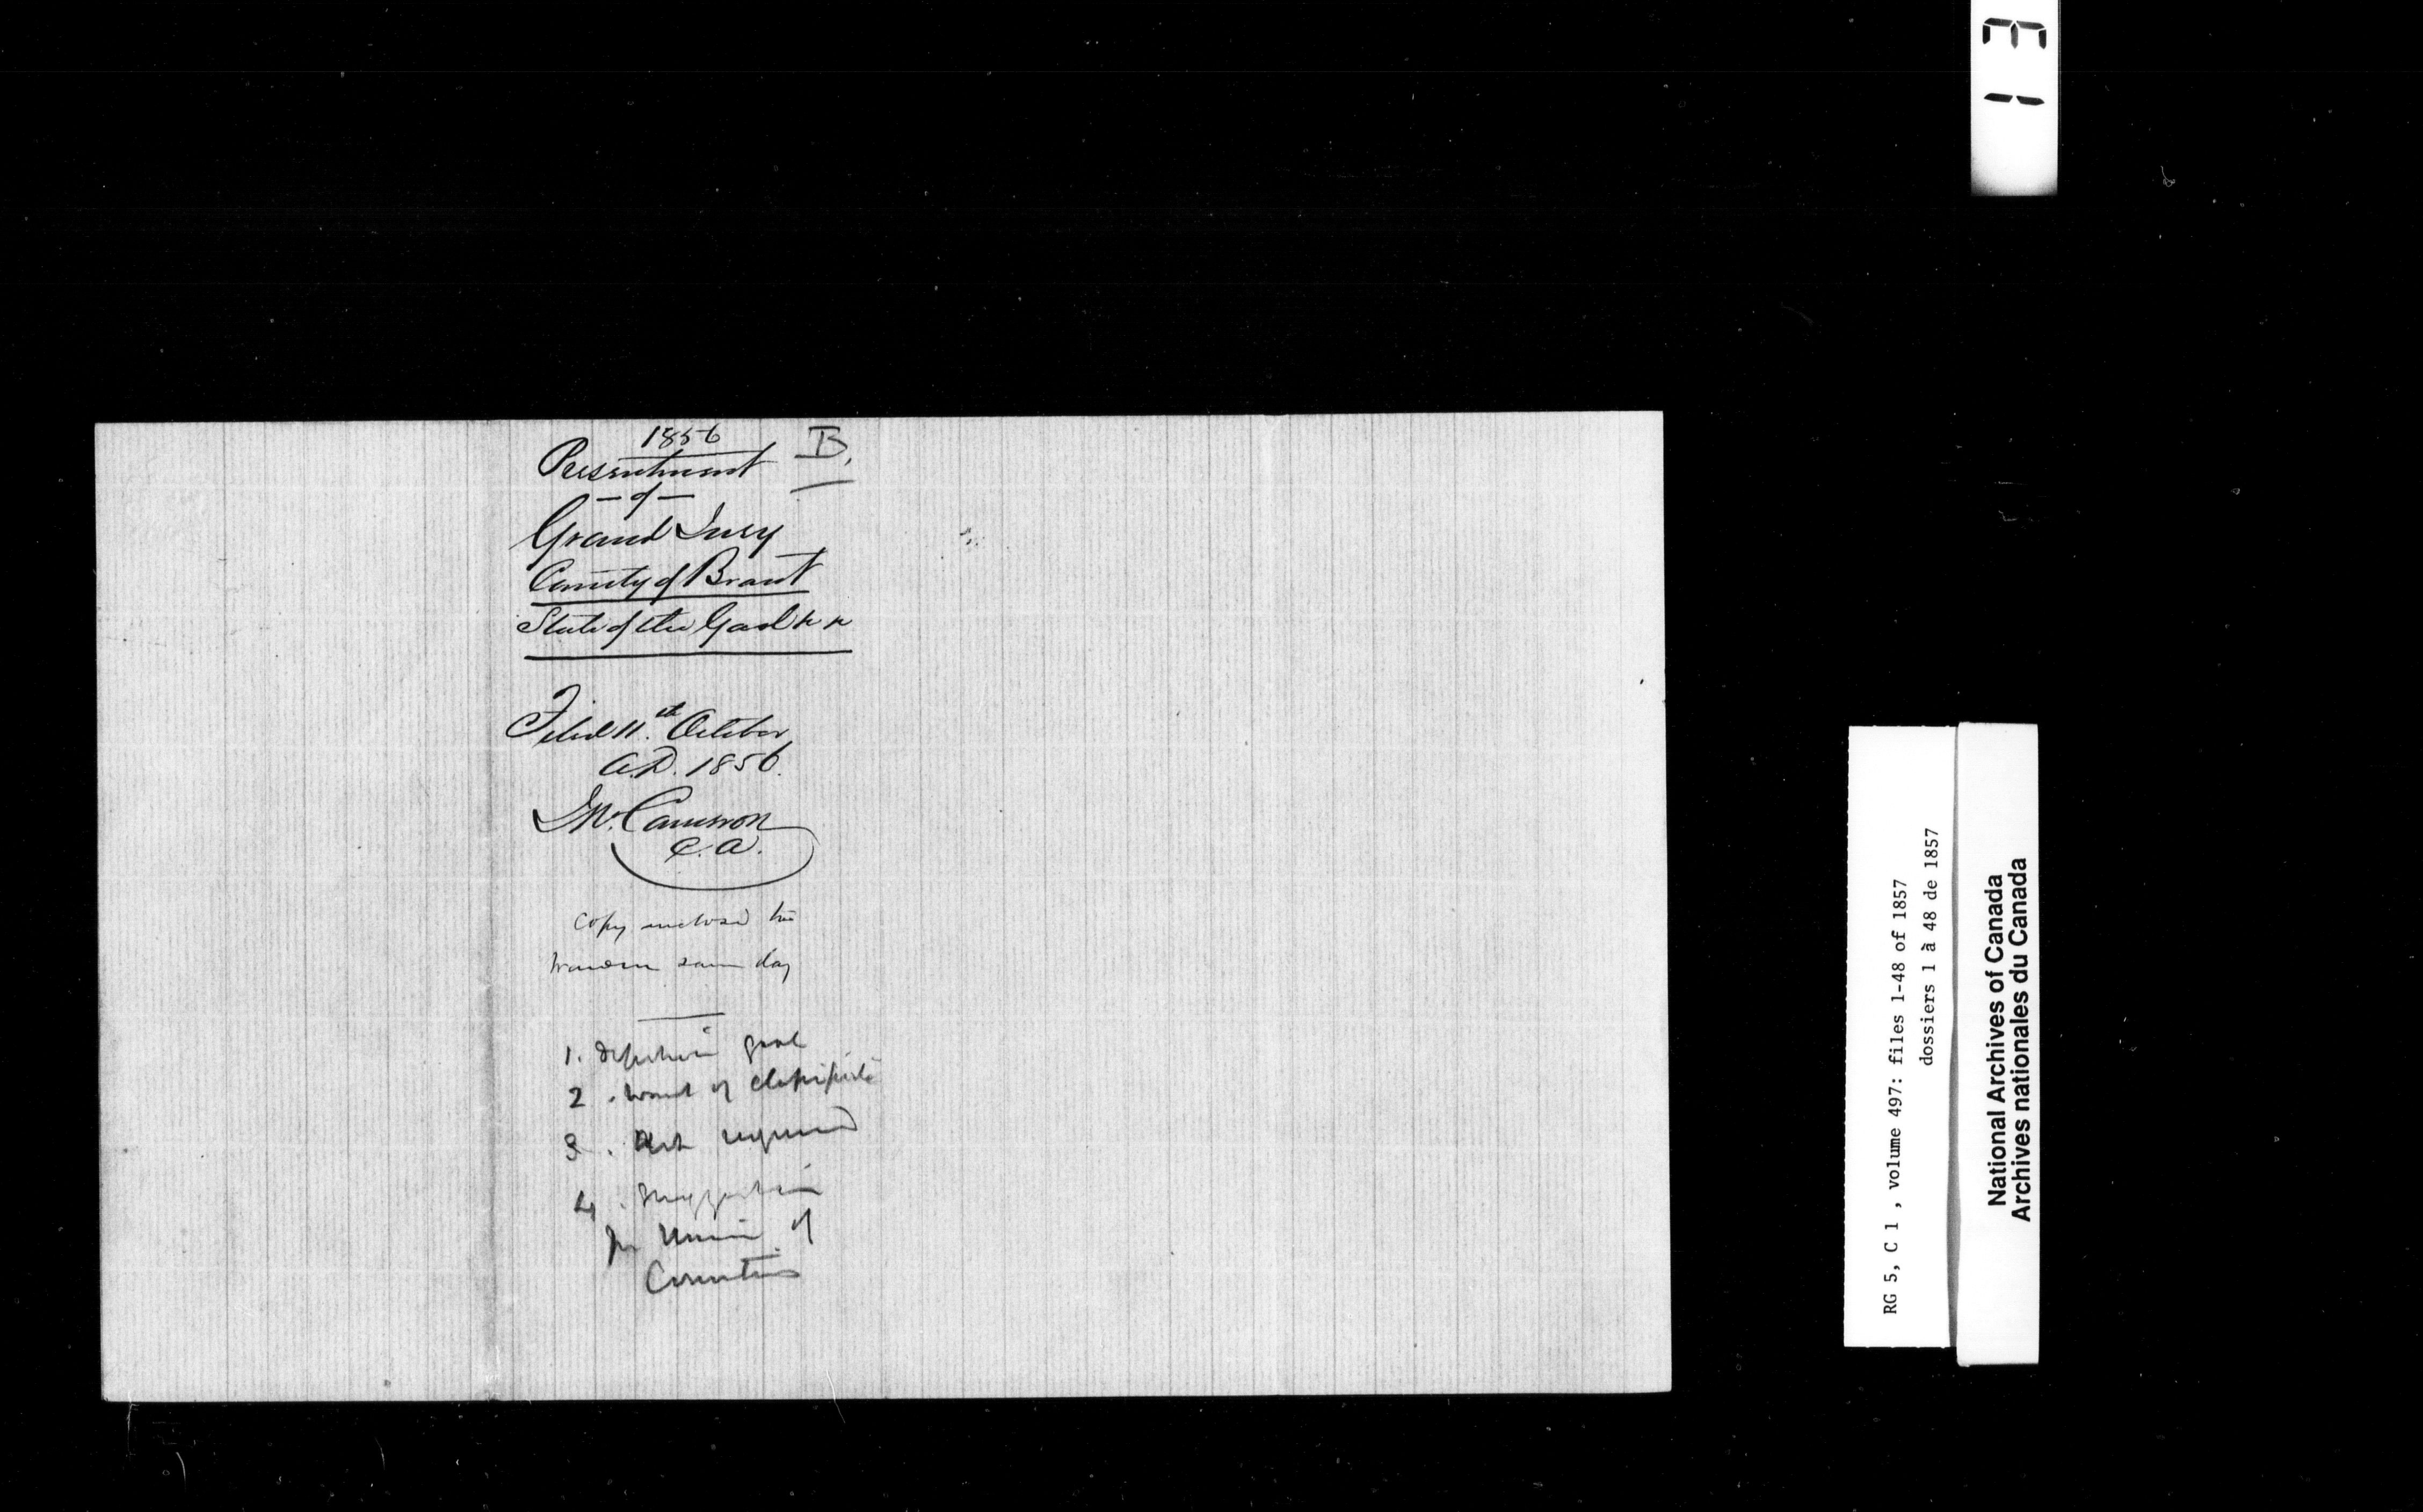 1856
B.
Presentment
— of —
Grand Jury
County of Brant
State of the Gaol
Filed 11th. October
A.D. 1856.
Cameron
C. A.
Copy enclosed to
Warden same day
1. Defective gaol
2. Want of classification
3. required
4. Suggestion
for Union of
Counties
13
RG 5, C 1 , volume 497: files 1-48 of 1857
dossiers 1 à 48 de 1857
National Archives of Canada
Archives nationales du Canada